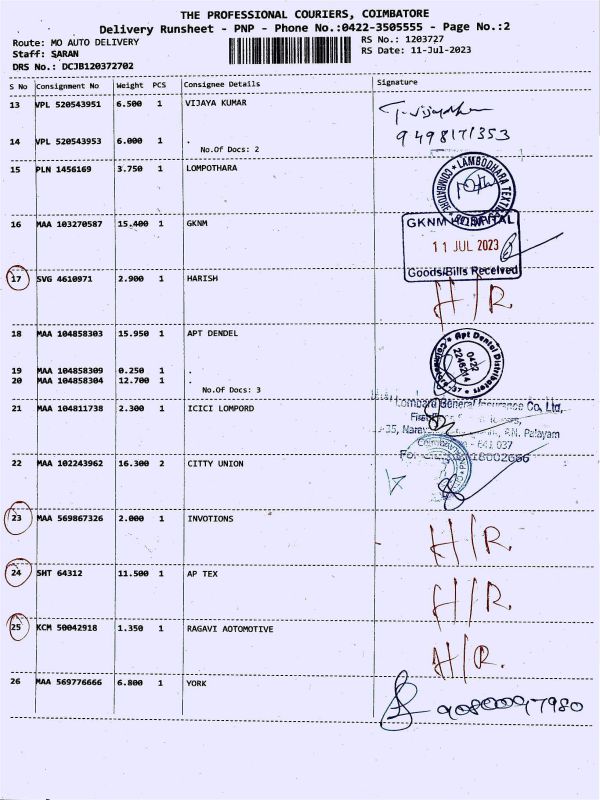 THE PROFESSIONAL COURIERS, COIMBATORE
Delivery Runsheet - PNP - Phone No.:0422-3505555 - Page No.:2
Route: MO AUTO DELIVERY RS No.: 1203727
Staff: SARAN RS Date: 11-Jul-2023
DRS No.: DCJB120372702
S No Consignment No Weight PCS Consignee Details Signature
13 VPL 520543951 6.500 1 VIJAYA KUMAR
9498171353
14 VPL 520543953 6.000 1 .
No.Of Docs: 2
15 PLN 1456169 3.750 1 LOMPOTHARA
LAMBODHARA COIMBATORE
16 MAA 103270587 15.400 1 GKNM
GKNM HOSPITAL
11 JUL 2023
Goods/Bills Received
17 SVG 4610971 2.900 1 HARISH H/R
18 MAA 104858303 15.950 1 APT DENDEL
Apt Dental Distributors
0422
2248214
19 MAA 104858309 0.250 1 .
20 MAA 104858304 12.700 1 .
No.Of Docs: 3
21 MAA 104811738 2.300 1 ICICI LOMPORD
Lombard General Insurance Co, Ltd,
P.N. Palayam
641 037
22 MAA 102243962 16.300 2 CITTY UNION
23 MAA 569867326 2.000 1 INVOTIONS H/R.
24 SHT 64312 11.500 1 AP TEX H/R.
25 KCM 50042918 1.350 1 RAGAVI AOTOMOTIVE H/R.
26 MAA 569776666 6.800 1 YORK